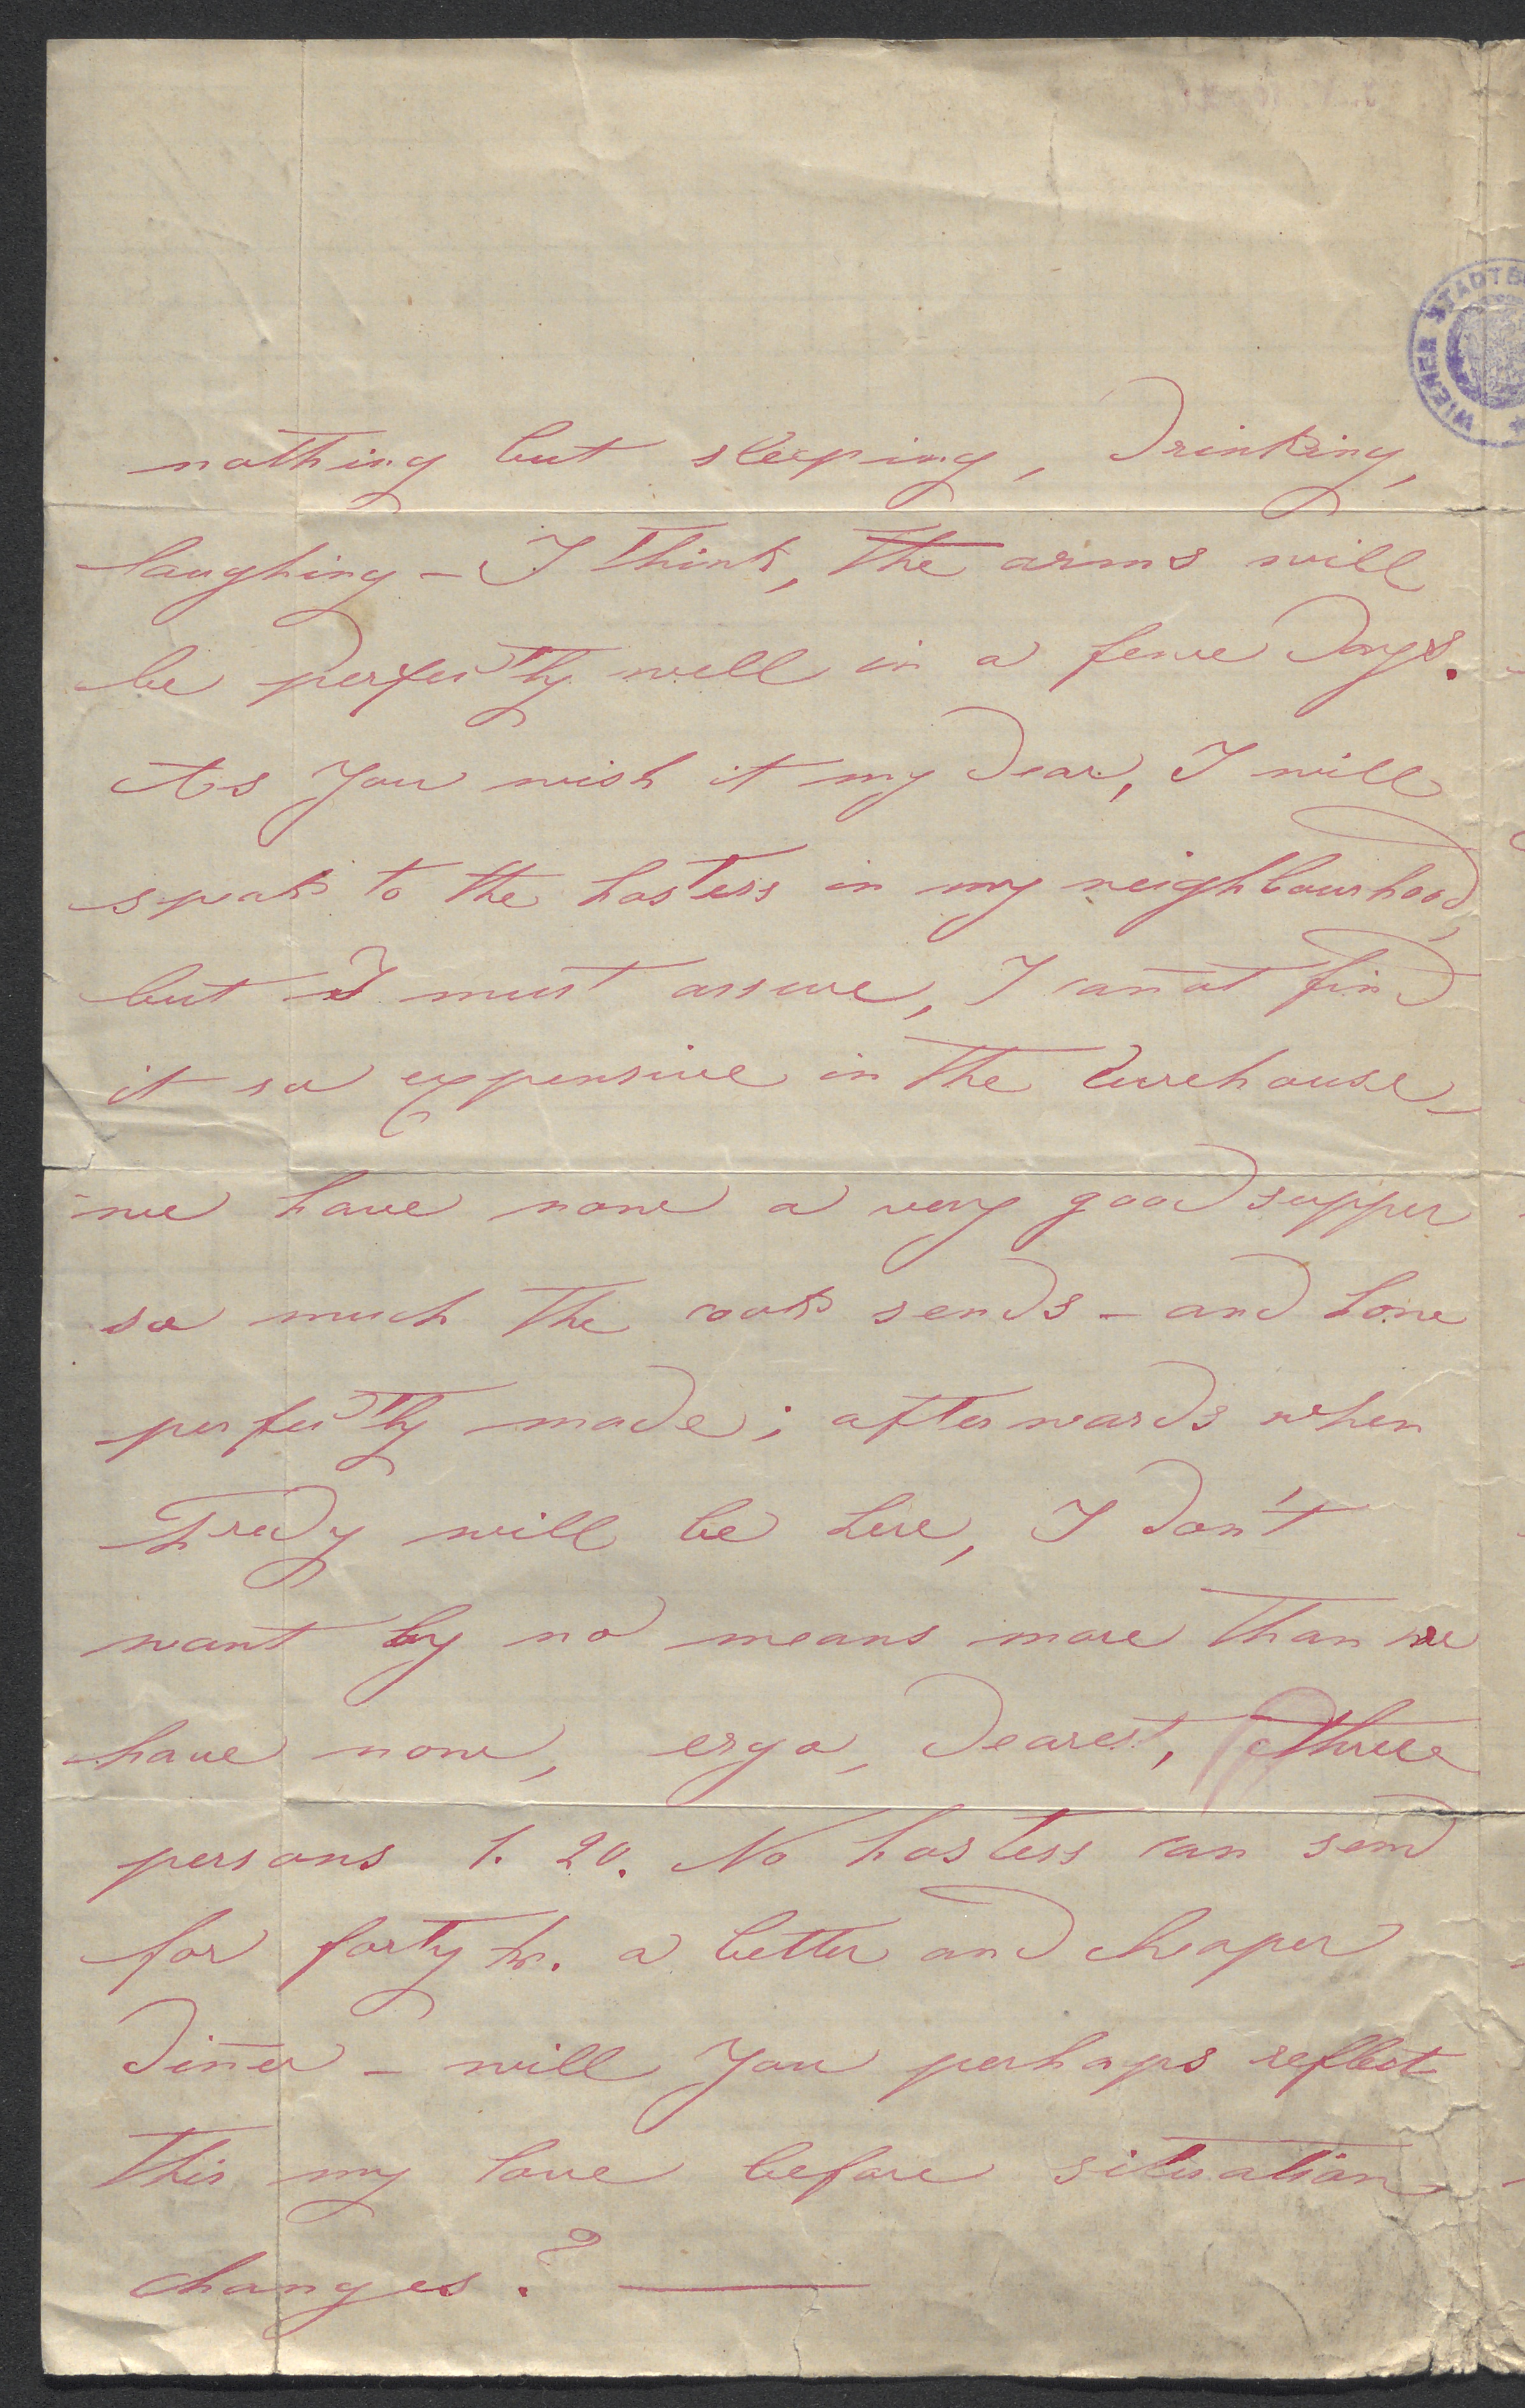 WIENER STADTB
nothing but sleeping, drinking,
laughing – I think, the arms will
be perfectly well in a fewe days.
As you wish it my dear, I will
speak to the hostess in my neighbourhood,
but I must assure, I cañot find
it so expensive in the Curehouse –
we have now a very good supper
so much the cook sends – and how
perfectly made; afterwards when
Fredy will be here, I don't
want by no means more than we
have now, ergo, dearest, three
persons 1. 20. No hostess can send
for forty kr. a better and cheaper
diñer – will you perhaps reflect
this my love before situation
changes? —